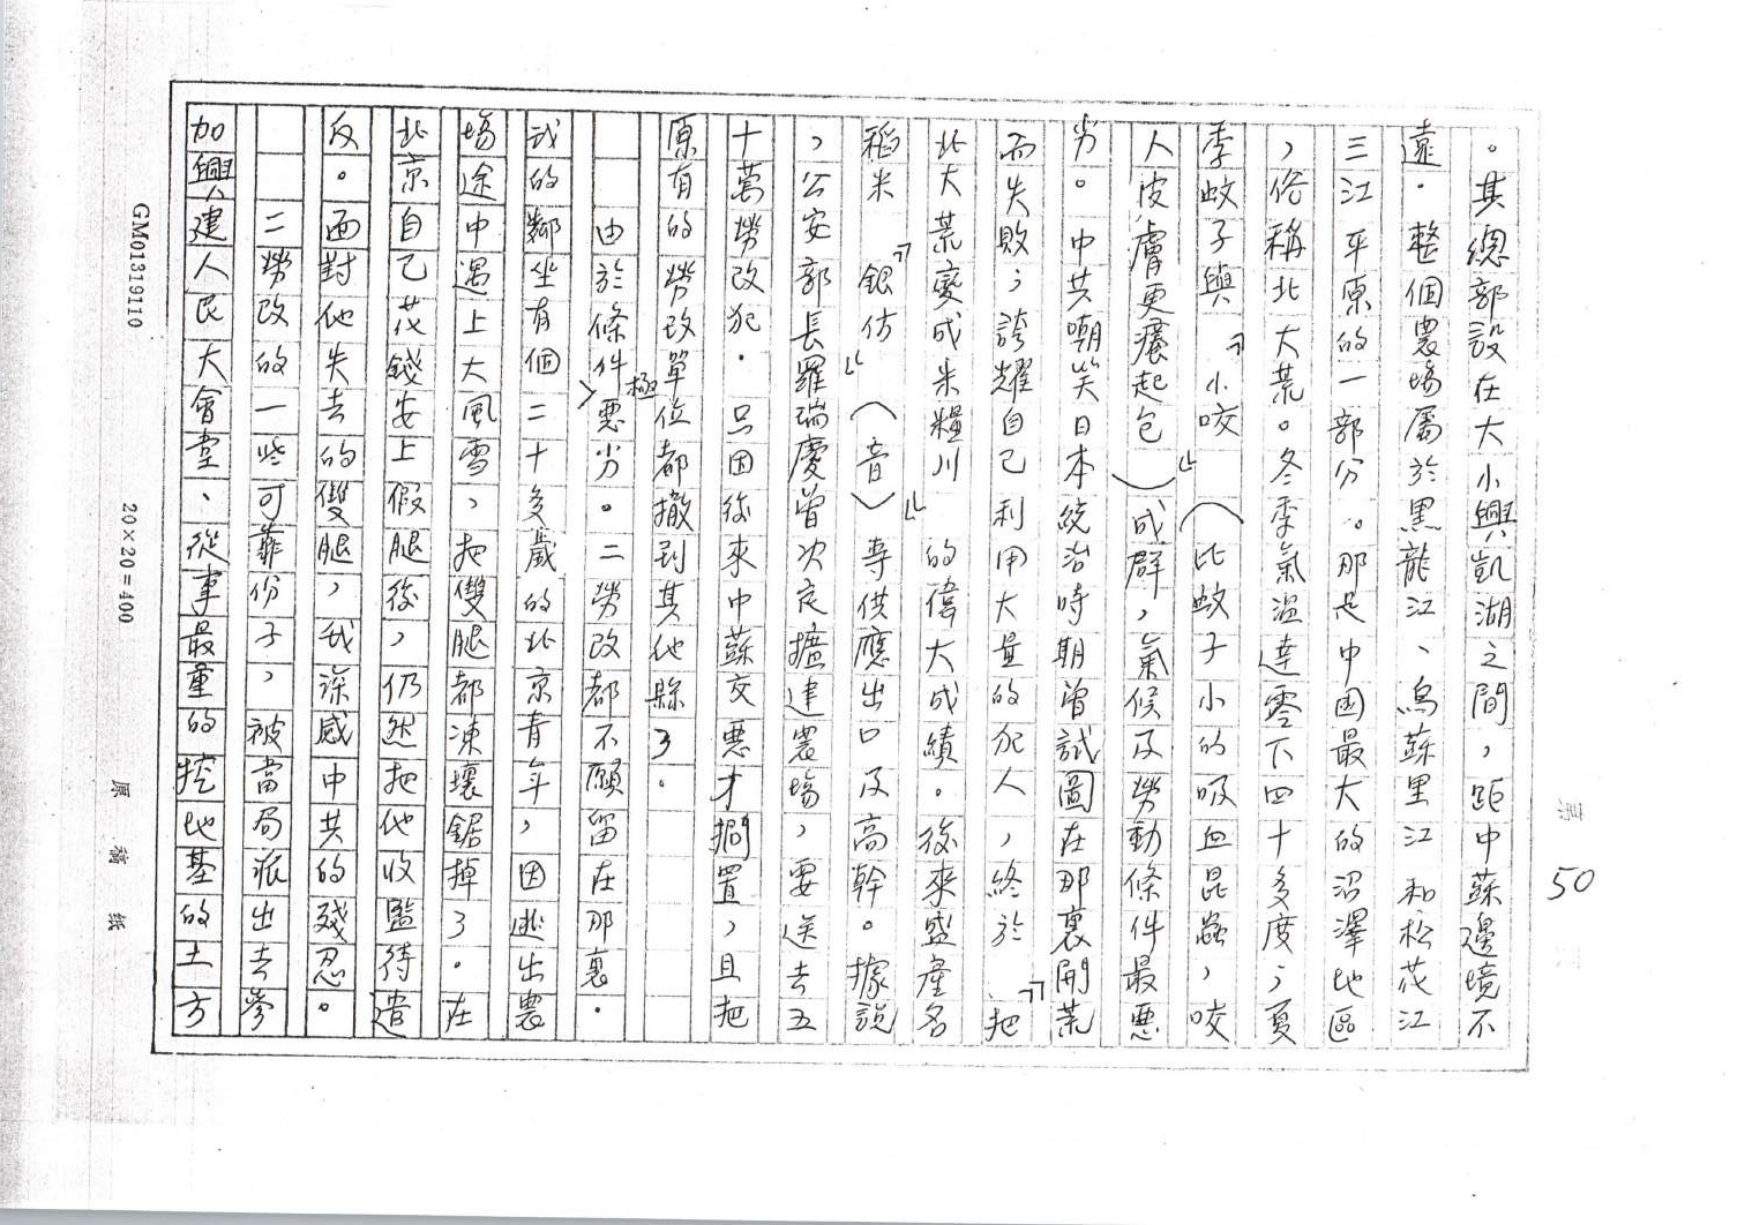 第 50
。其總部設在大小興凱湖之間，距中蘇邊境不
遠．整個農場屬於黑龍江、烏蘇里江和松花江
三江平原的一部分．。那是中国最大的沼澤地區
，俗稱北大荒。冬季氣温達零下四十多度；夏
季蚊子與『小咬』（比蚊子小的吸血昆蟲，咬
人皮膚更癢起包）成群，氣候及勞動條件最悪
劣。中共嘲笑日本統治時期曾試圖在那裏開荒
而失敗；誇耀自己利用大量的犯人，終於『把
北大荒變成米糧川』的偉大成績。後來盛產名
稻米『銀仿』（音）專供應出口及高幹。據說
，公安部長羅瑞慶曾次定擴建農場，要送去五
十萬勞改犯．只因後來中蘇交悪才擱置，且把
原有的勞改單位都撤到其他縣了。
由於條件極悪劣。二勞改都不願留在那裏．
我的鄰坐有個二十多歲的北京青年，因逃出農
場途中遇上大風雪，把雙腿都凍壞鋸掉了．在
北京自己花錢安上假腿後，仍然把他收監待遣
反。面對他失去的雙腿，我深感中共的殘忍。
二勞改的一些可靠份子，被當局派出去參
加興建人民大會堂、從事最重的挖地基的土方
GM01319110
20×20=400
原稿紙